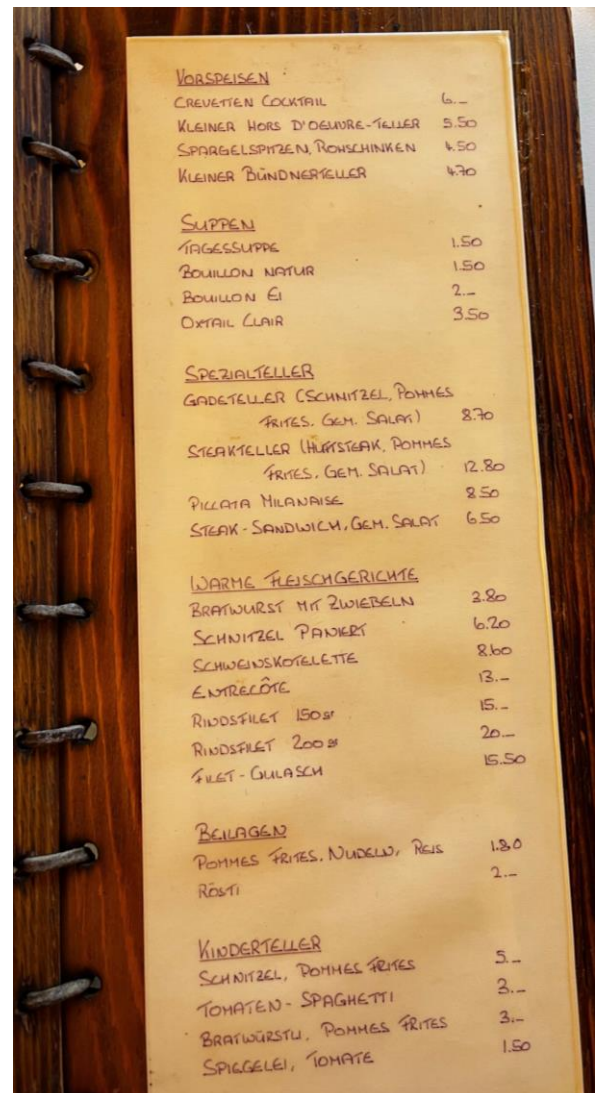 VORSPEISEN
CREVETTEN COCKTAIL 6.–
KLEINER HORS D'OEUVRE-TELLER 5.50
SPARGELSPITZEN, ROHSCHINKEN 4.50
KLEINER BÜNDNERTELLER 4.70
SUPPEN
TAGESSUPPE 1.50
BOUILLON NATUR 1.50
BOUILLON EI 2.–
OXTAIL CLAIR 3.50
SPEZIALTELLER
GADETELLER (SCHNITZEL, POMMES
FRITES, GEM. SALAT) 8.70
STEAKTELLER (HUFTSTEAK, POMMES
FRITES, GEM. SALAT) 12.80
PICCATA MILANAISE 8.50
STEAK-SANDWICH, GEM. SALAT 6.50
WARME FLEISCHGERICHTE
BRATWURST MIT ZWIEBELN 3.80
SCHNITZEL PANIERT 6.20
SCHWEINSKOTELETTE 8.60
ENTRECÔTE 13.–
RINDSFILET 150 gr 15.–
RINDSFILET 200 gr 20.–
FILET-GULASCH 15.50
BEILAGEN
POMMES FRITES, NUDELN, REIS 1.80
RÖSTI 2.–
KINDERTELLER
SCHNITZEL, POMMES FRITES 5.–
TOMATEN-SPAGHETTI 3.–
BRATWÜRSTLI, POMMES FRITES 3.–
SPIEGELEI, TOMATE 1.50